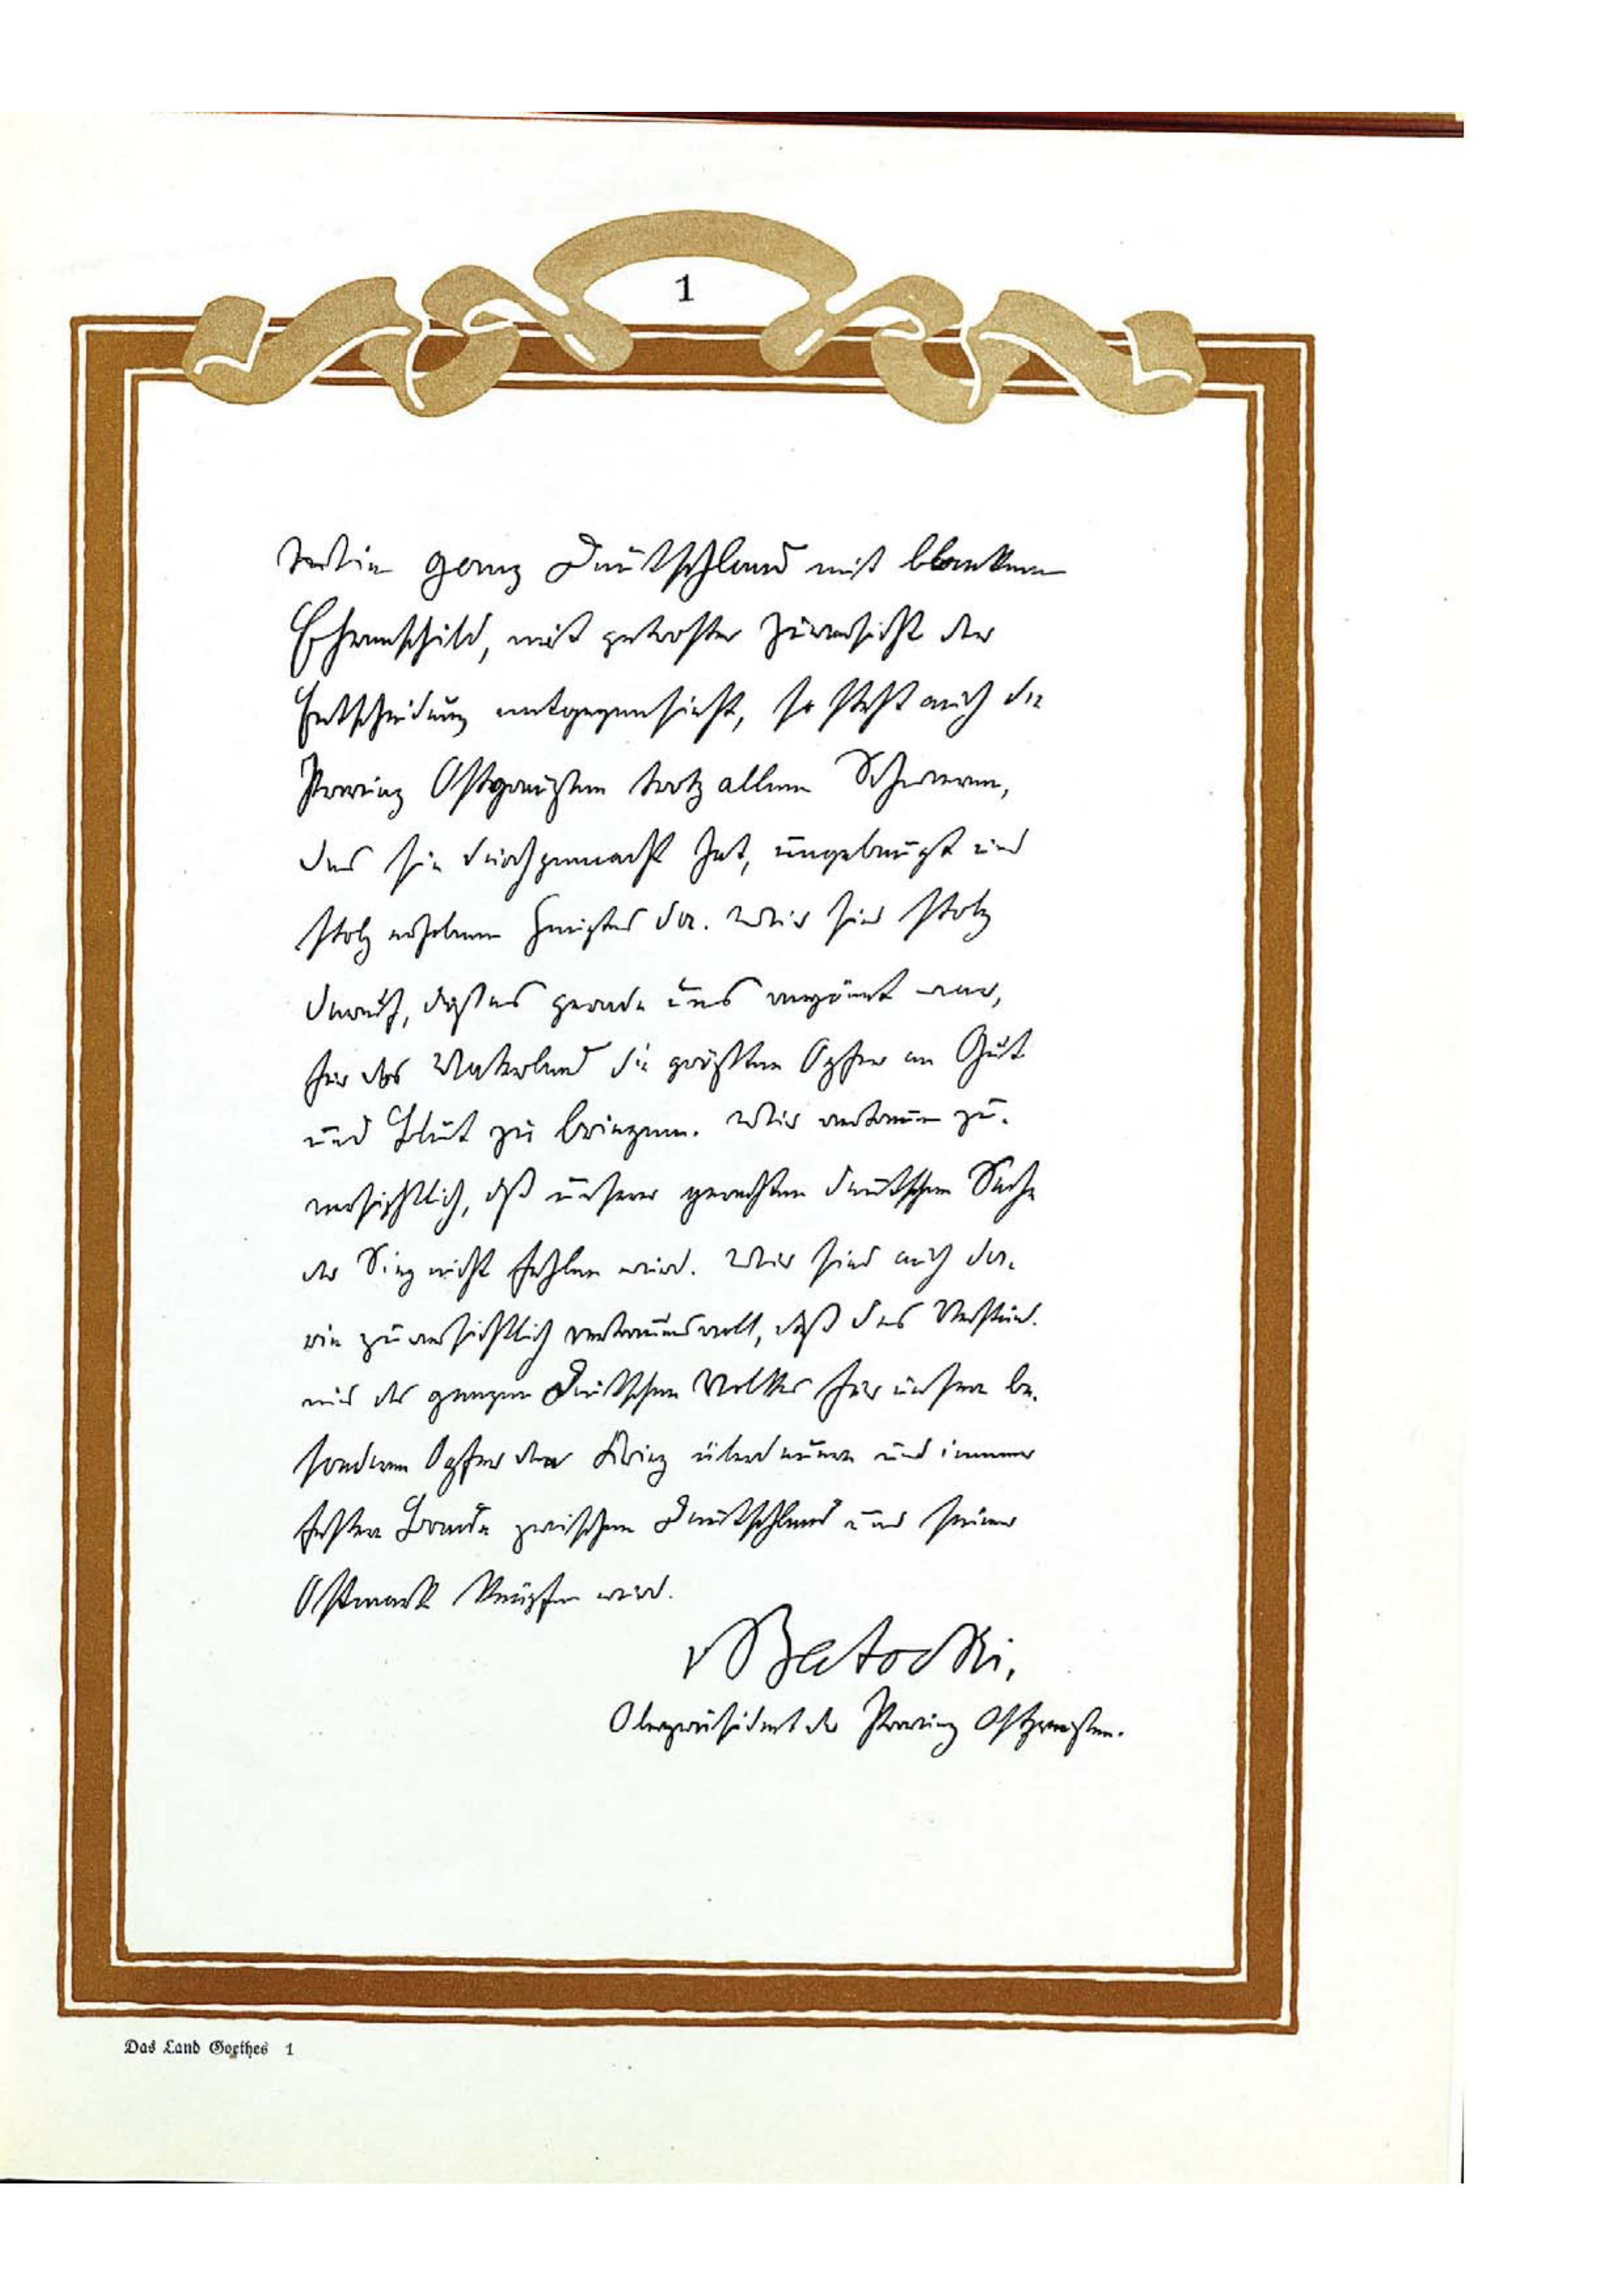 1
Wie ganz Deutschland mit blankem
Ehrenschild, mit getroster Zuversicht der
Entscheidung entgegensieht, so steht auch die
Provinz Ostpreußen trotz allem Schweren,
das sie durchgemacht hat, ungebeugt und
stolz erhobenen Hauptes da. Wir sind stolz
darauf, daß es gerade uns vergönnt war,
für das Vaterland die größten Opfer an Gut
und Blut zu bringen. Wir vertrauen zu-
versichtlich, daß unserer gerechten deutschen Sache
der Sieg nicht fehlen wird. Wir sind auch
zuversichtlich vertrauensvoll, daß das Verständ-
nis des ganzen Deutschen Volkes für unsere be-
sonderen Opfer den Krieg überdauern und immer
festere Bande zwischen Deutschland und seiner
Ostmark knüpfen wird.
v Batocki,
Oberpräsident der Provinz Ostpreußen.
Das Land Goethes 1